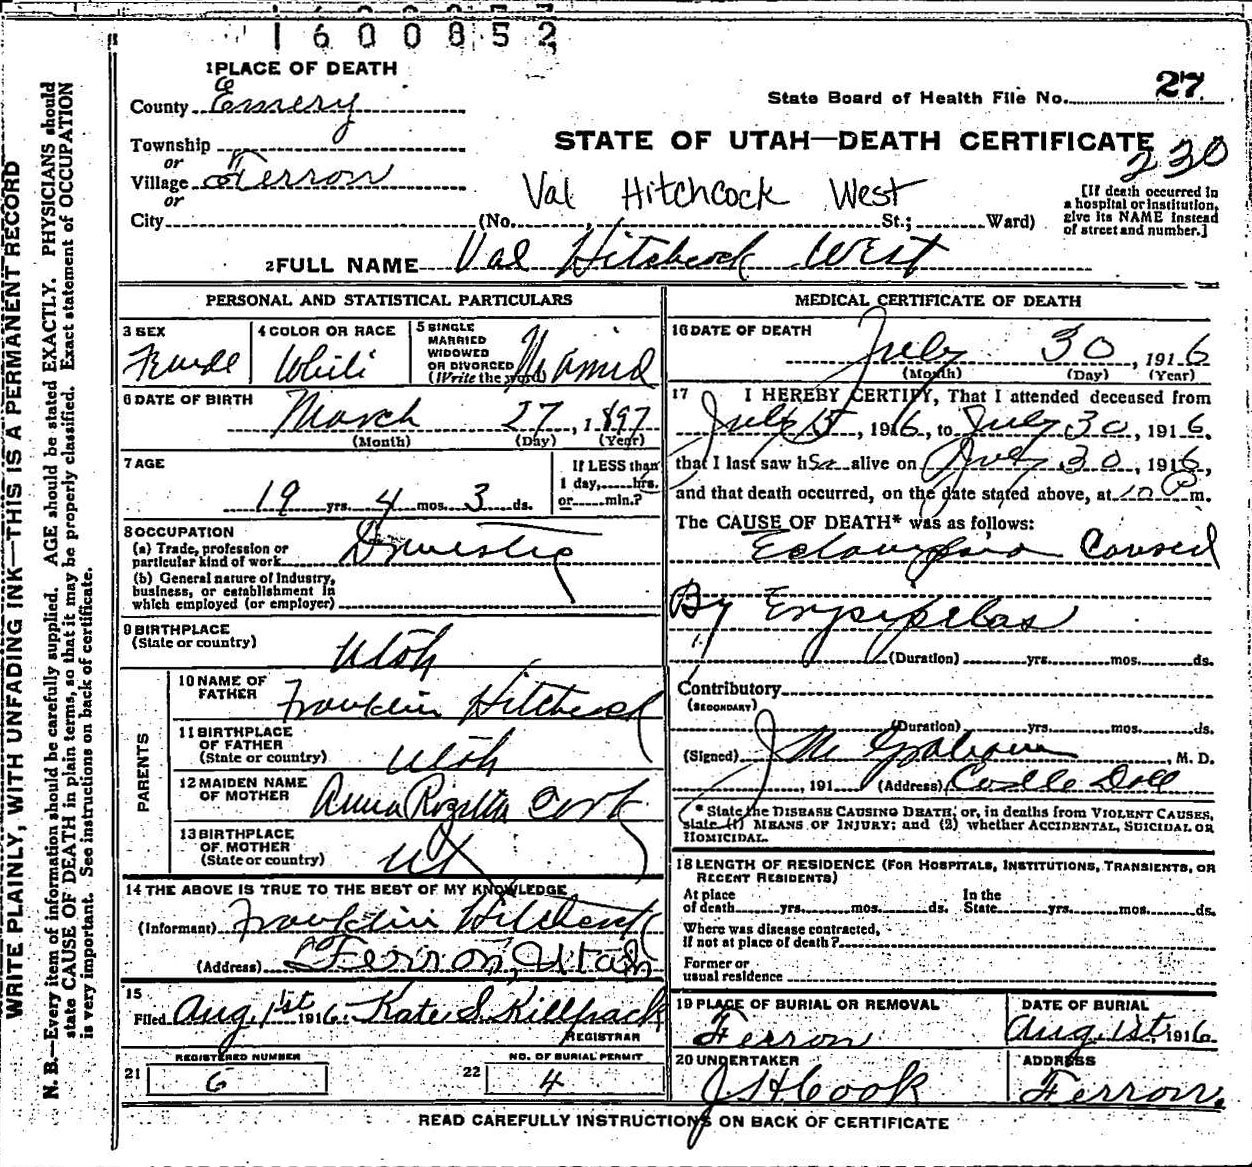 1600852
1 PLACE OF DEATH
County Emery
State Board of Health File No. 27
STATE OF UTAH—DEATH CERTIFICATE
230
Township
or
Village Ferron
or
City
Val Hitchcock West
(No. St.; Ward)
[If death occurred in
a hospital or institution,
give its NAME instead
of street and number.]
2 FULL NAME Val Hitchcock West
PERSONAL AND STATISTICAL PARTICULARS
3 SEX
Female
4 COLOR OR RACE
White
5 SINGLE
MARRIED
WIDOWED
OR DIVORCED
(Write the word)
6 DATE OF BIRTH
March 27, 1897
(Month) (Day) (Year)
7 AGE
19 yrs. 4 mos. 3 ds.
If LESS than
1 day, hrs.
or min.?
8 OCCUPATION
(a) Trade, profession or
particular kind of work Domestic
(b) General nature of Industry,
business, or establishment in
which employed (or employer)
9 BIRTHPLACE
(State or country)
Utah
PARENTS
10 NAME OF
FATHER
Franklin Hitchcock
11 BIRTHPLACE
OF FATHER
(State or country)
Utah
12 MAIDEN NAME
OF MOTHER
Anna Rozella
13 BIRTHPLACE
OF MOTHER
(State or country)
Ut
14 THE ABOVE IS TRUE TO THE BEST OF MY KNOWLEDGE
(Informant) Franklin Hitchcock
(Address) Ferron, Utah
15
Filed Aug. 1st 1916 Kate S. Killpack
REGISTRAR
REGISTERED NUMBER
21 6
NO. OF BURIAL PERMIT
22 4
MEDICAL CERTIFICATE OF DEATH
16 DATE OF DEATH
July 30, 1916
(Month) (Day) (Year)
17 I HEREBY CERTIFY, That I attended deceased from
July 15, 1916, to July 30, 1916.
that I last saw her alive on July 30, 1916,
and that death occurred, on the date stated above, at m.
The CAUSE OF DEATH* was as follows:
Eclampsia Caused
By Erysipelas
(Duration) yrs. mos. ds.
Contributory
(SECONDARY)
(Duration) yrs. mos. ds.
(Signed) J M Graham, M. D.
, 191 (Address) Castle Dale
* State the DISEASE CAUSING DEATH, or, in deaths from VIOLENT CAUSES,
state (1) MEANS OF INJURY; and (2) whether ACCIDENTAL, SUICIDAL OR
HOMICIDAL.
18 LENGTH OF RESIDENCE (FOR HOSPITALS, INSTITUTIONS, TRANSIENTS, OR
RECENT RESIDENTS)
At place In the
of death yrs. mos. ds. State yrs. mos. ds.
Where was disease contracted,
if not at place of death?
Former or
usual residence
19 PLACE OF BURIAL OR REMOVAL
Ferron
DATE OF BURIAL
Aug. 1st, 1916.
20 UNDERTAKER
J H Cook
ADDRESS
Ferron.
READ CAREFULLY INSTRUCTIONS ON BACK OF CERTIFICATE
WRITE PLAINLY, WITH UNFADING INK—THIS IS A PERMANENT RECORD
N. B.—Every item of information should be carefully supplied. AGE should be stated EXACTLY. PHYSICIANS should
state CAUSE OF DEATH in plain terms, so that it may be properly classified. Exact statement of OCCUPATION
is very important. See instructions on back of certificate.